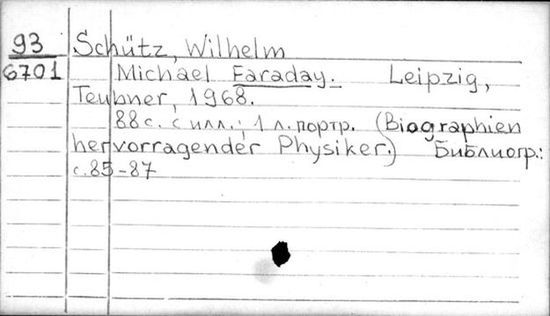 93 Schütz, Wilhelm
6701 Michael Faraday. Leipzig,
Teubner, 1968.
88 с. с илл.; 1 л. портр. (Biographien
hervorragender Physiker.) Библиогр.:
с. 85-87